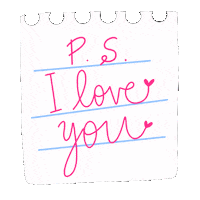 P.S.
I love
you